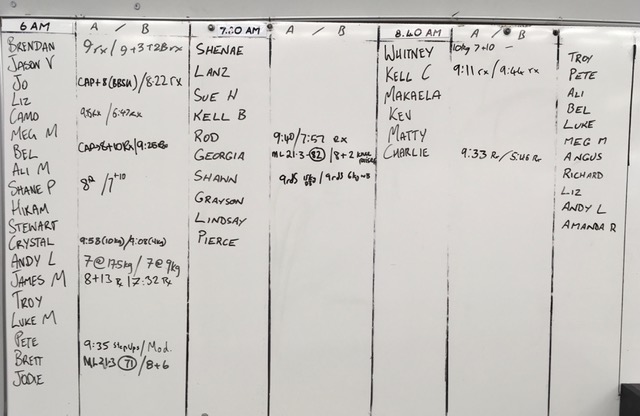 6 AM A / B
BRENDAN 9 rx / 9+3+2B rx
JASON V
JO CAP+8 (BBSU) / 8:22 rx
LIZ
CAMO / 6:47 Rx
MEG M
BEL
ALI M
SHANE P
HIRAM
STEWART
CRYSTAL 9:58 (10kg) / 9:08 (4kg)
ANDY L 7 @ 17.5kg / 7 @ 9kg
JAMES M 8+13 Rx 17:32 Rx
TROY
LUKE M
PETE 9:35 step ups / Mod.
BRETT ML21.3 (71) / 8+6
JODIE
7:20 AM A / B
SHENAE
LANZ
SUE N
KELL B
ROD 9:40 / 7:57 Rx
GEORGIA ML 21.3 - (82) / 8+2 knee raises
SHAWN 9rds / 9rds 6kg
GRAYSON
LINDSAY
PIERCE
8.40 AM A / B
WHITNEY 10kg 7+10 -
KELL C 9:11 rx / 9:44 rx
MAKAELA
KEV
MATTY
CHARLIE 9:33 Rx / 5:46 Rx
TROY
PETE
ALI
BEL
LUKE
MEG M
ANGUS
RICHARD
LIZ
ANDY L
AMANDA R